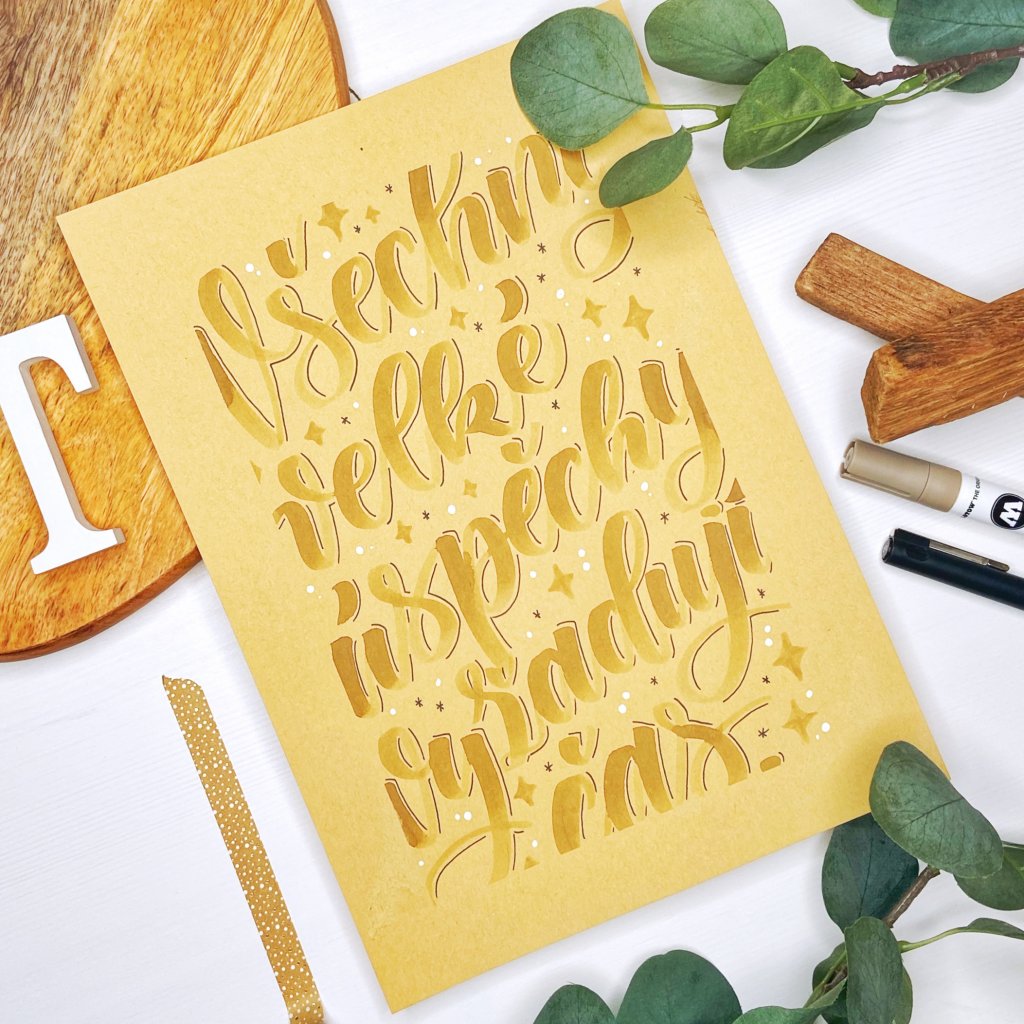 Všechny
velké
úspěchy
vyžadují
čas.
T